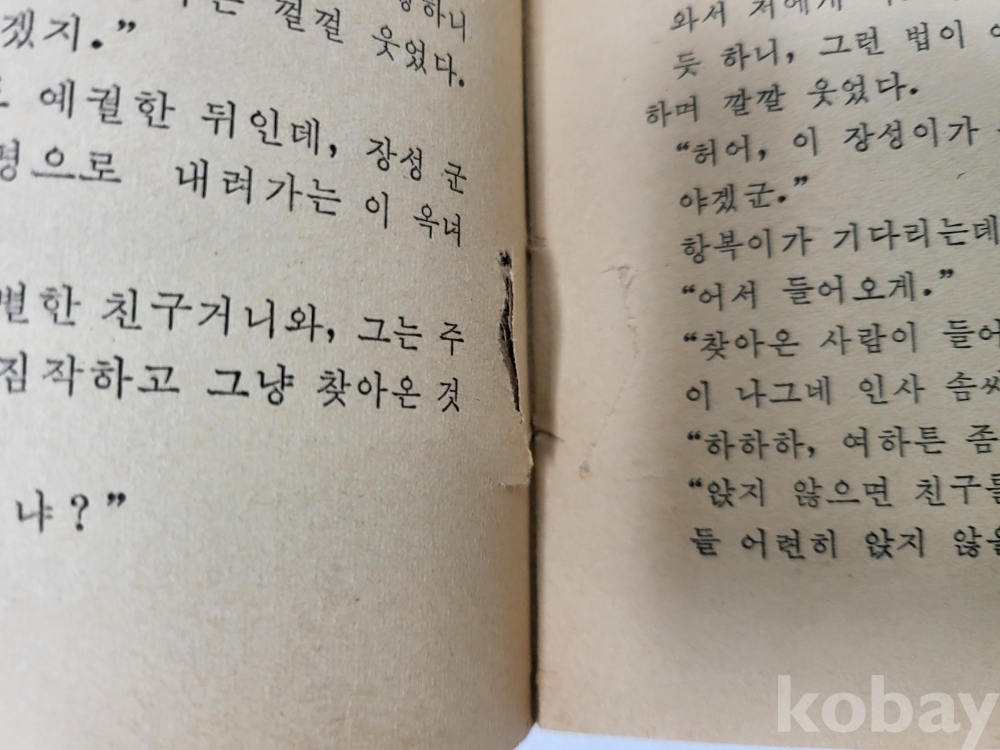 껄껄 웃었다.
겠지.”
예궐한 뒤인데, 장성 군
명으로 내려가는 이 옥녀
별한 친구거니와, 그는 주
짐작하고 그냥 찾아온 것
냐?”
와서 저에게
듯 하니, 그런 법이
하며 깔깔 웃었다.
“허어, 이 장성이가
야겠군.”
항복이가 기다리는데
“어서 들어오게.”
“찾아온 사람이 들어
이 나그네 인사 솜씨
“하하하, 여하튼 좀
“앉지 않으면 친구를
들 어련히 앉지 않을
kobay